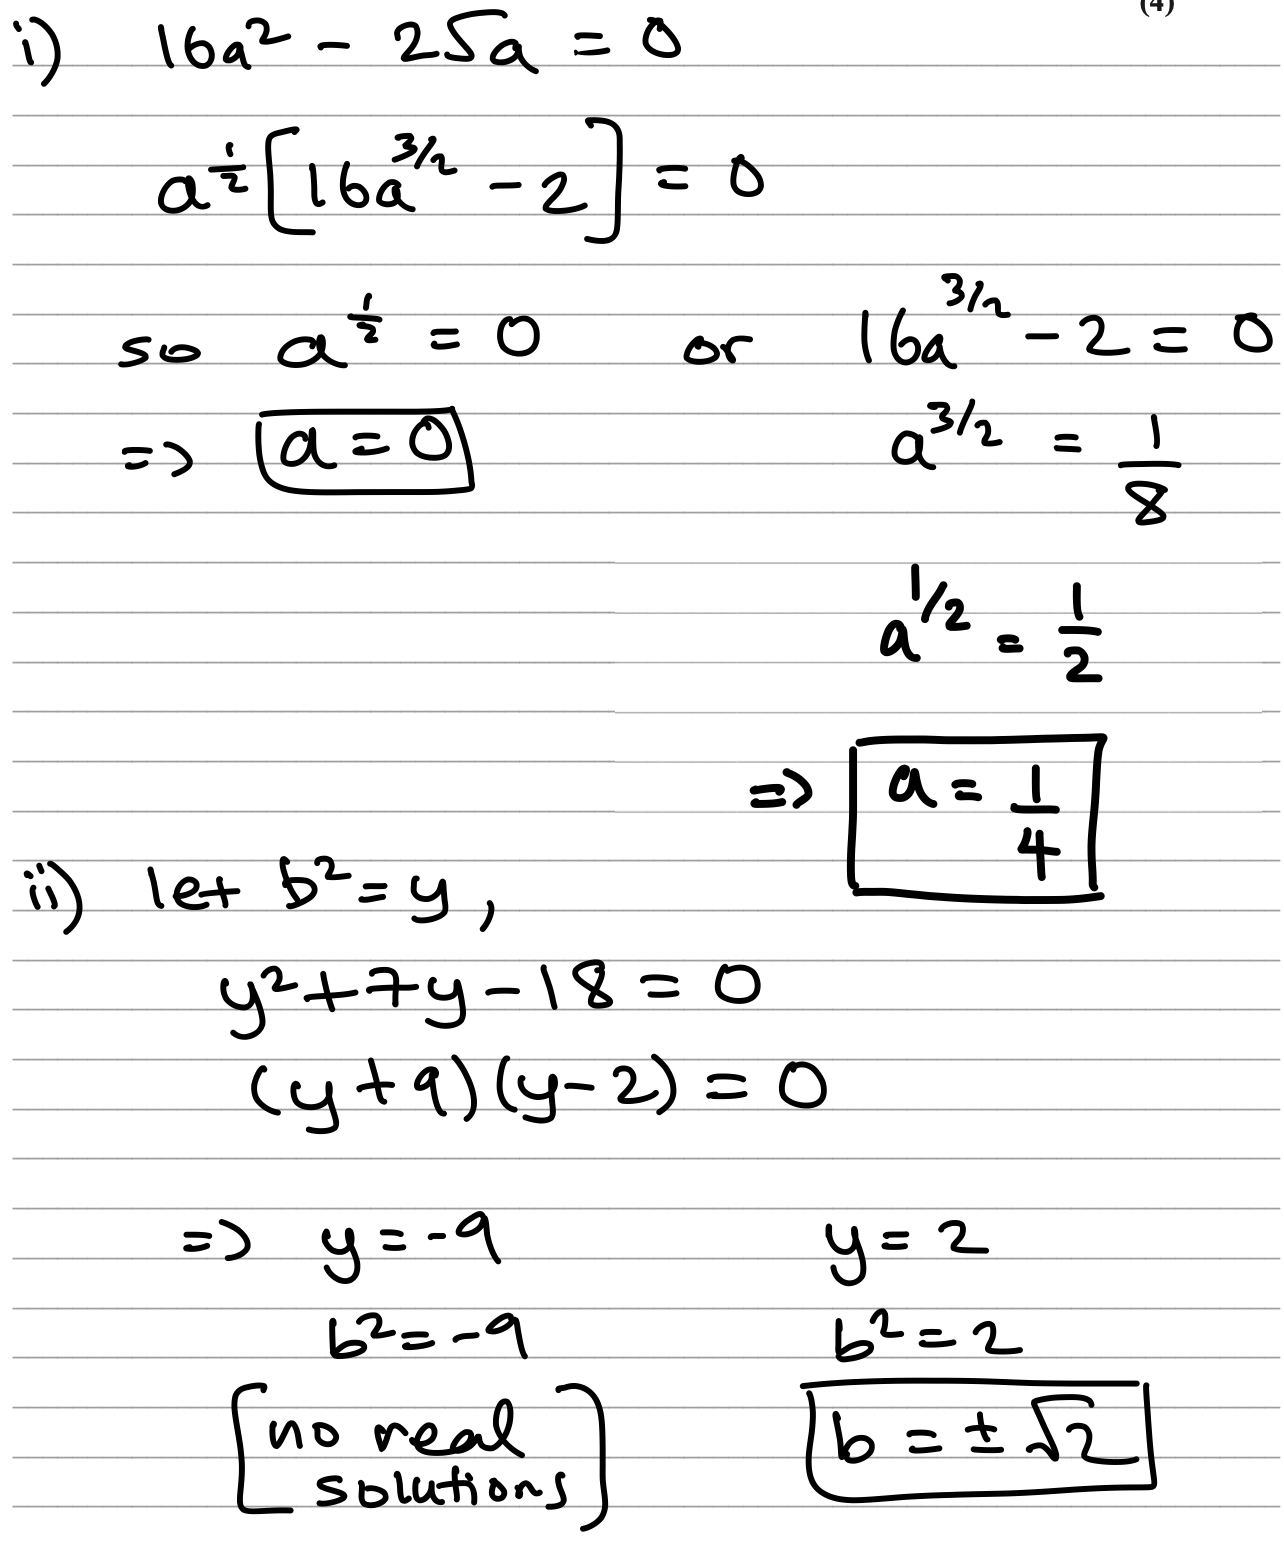 (4)
i) 16a² - 2√a = 0
a^{1/2} [16a^{3/2} - 2] = 0
so a^{1/2} = 0 or 16a^{3/2} - 2 = 0
=> a = 0 a^{3/2} = 1/8
a^{1/2} = 1/2
=> a = 1/4
ii) let b² = y,
y² + 7y - 18 = 0
(y + 9)(y - 2) = 0
=> y = -9 y = 2
b² = -9 b² = 2
[no real b = ± √2
solutions]